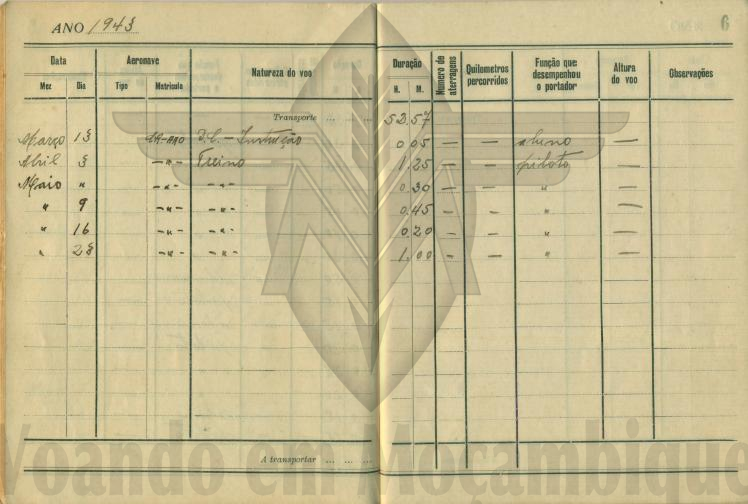 ANO 1943
6
Data Aeronave Natureza do voo Duração Numero de aterragens Quilometros percorridos Função que desempenhou o portador Altura do voo Observações
Mez Dia Tipo Matricula H. M.
Transporte ... ... ... 52.57
Março 13 D.C. - Instrução 0.05 — — aluno —
Abril 3 -"- Treino 1.25 — — piloto —
Maio " -"- -"- 0.30 — — " —
" 9 -"- -"- 0.45 — — " —
" 16 -"- -"- 0.20 — — " —
" 23 -"- -"- 1.00 — — " —
A transportar ... ... ...
Voando em Moçambique